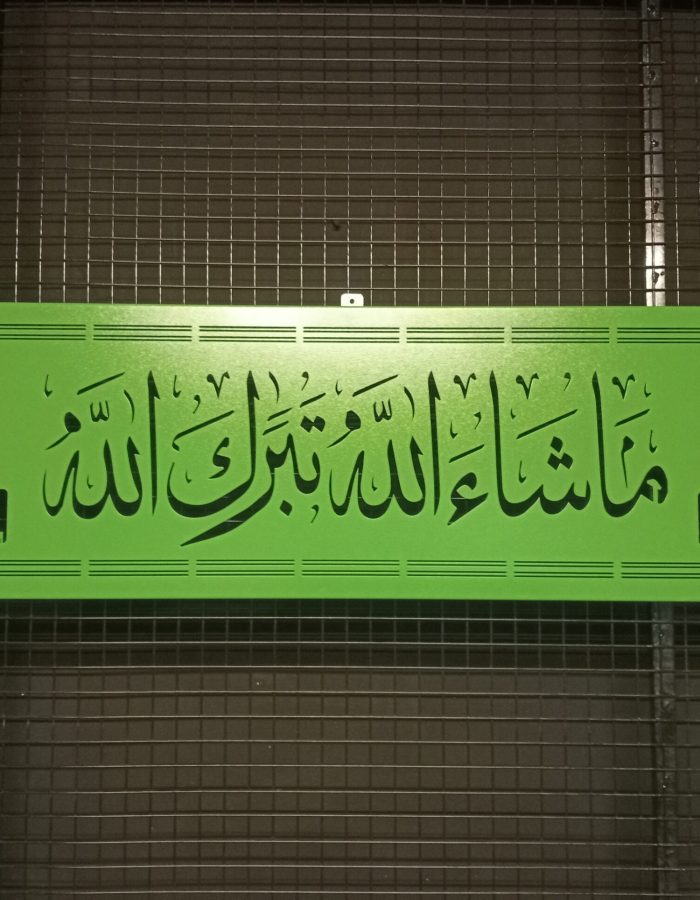 مَا شَاءَ اللَّهُ تَبَرَكَ اللَّهُ